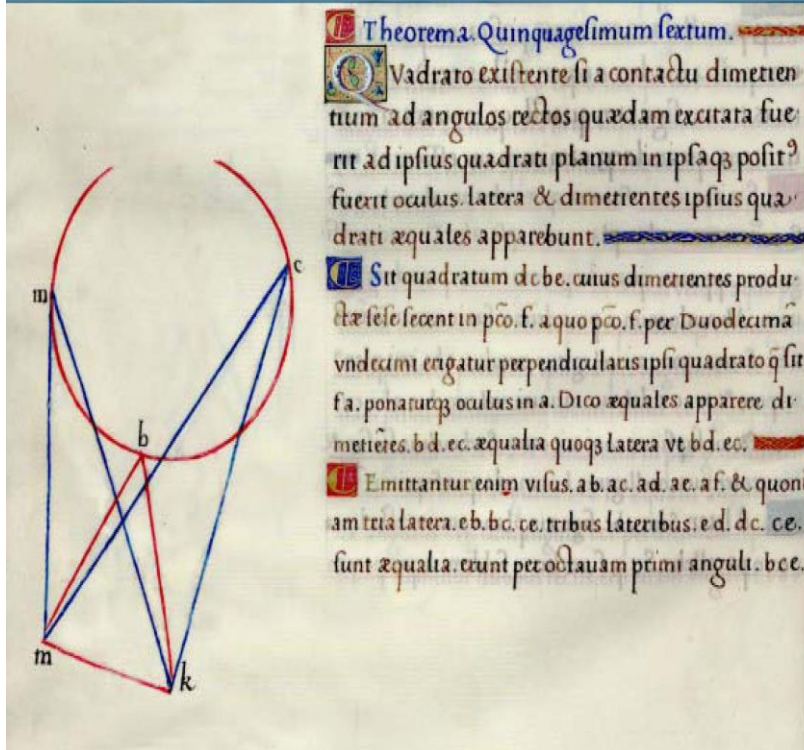 Theorema. Quinquagesimum sextum.
QVadrato existente si a contactu dimetien
tium ad angulos rectos quædam excitata fue
rit ad ipsius quadrati planum in ipsaqꝫ positꝰ
fuerit oculus. latera & dimetientes ipsius qua
drati æquales apparebunt.
Sit quadratum dcbe. cuius dimetientes produ
ctæ sese secent in pc̄o. f. a quo pc̄o. f. per Duodecimā
vndecimi erigatur perpendicularis ipsi quadrato q̄ sit
fa. ponaturqꝫ oculus in a. Dico æquales apparere di
metiētes. bd. ec. æqualia quoqꝫ latera vt bd. ec.
Emittantur enim visus. ab. ac. ad. ae. af. & quoni
am tria latera. eb. bc. ce. tribus lateribus. ed. dc. ce.
sunt æqualia. erunt per octauam primi anguli. bce.
m
c
b
m
k